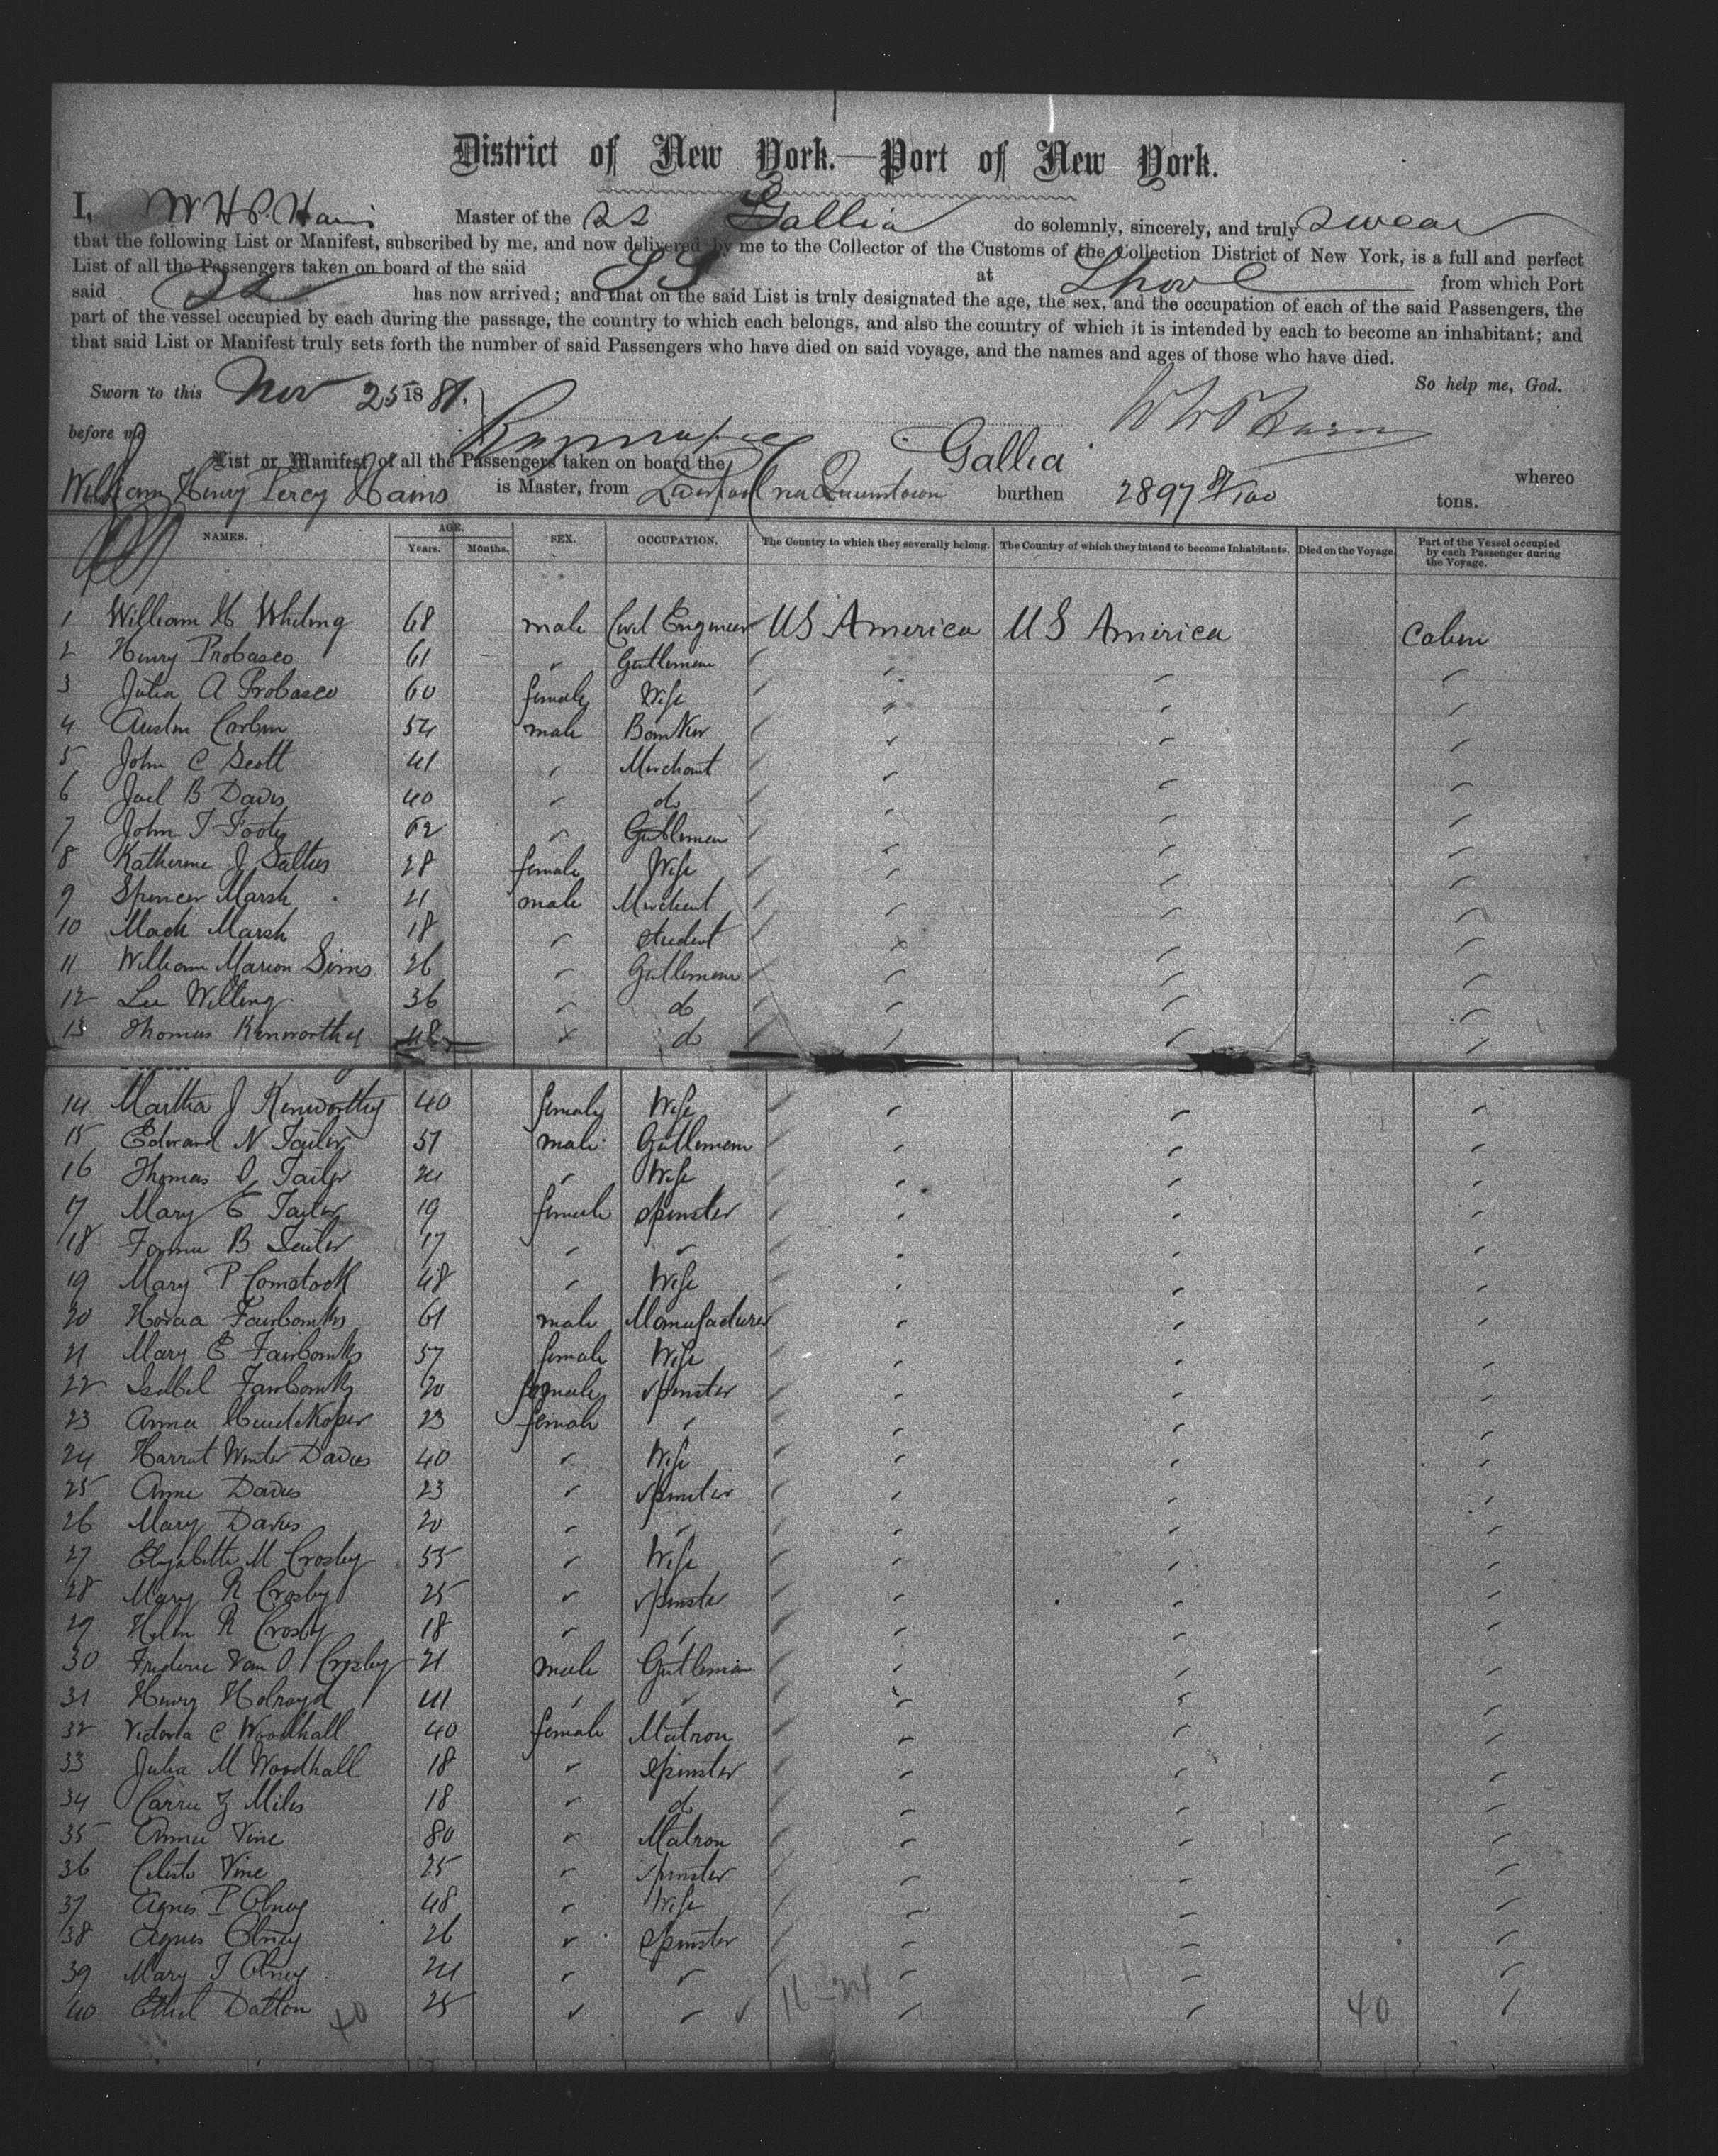 District of New York.—Port of New York.
I, W H P. Hains Master of the SS Gallia do solemnly, sincerely, and truly swear
that the following List or Manifest, subscribed by me, and now delivered by me to the Collector of the Customs of the Collection District of New York, is a full and perfect
List of all the Passengers taken on board of the said SS at Lpool from which Port
said SS has now arrived; and that on the said List is truly designated the age, the sex, and the occupation of each of the said Passengers, the
part of the vessel occupied by each during the passage, the country to which each belongs, and also the country of which it is intended by each to become an inhabitant; and
that said List or Manifest truly sets forth the number of said Passengers who have died on said voyage, and the names and ages of those who have died.
So help me, God.
Sworn to this Nov 25 1881. W H P Hains
before me
List or Manifest of all the Passengers taken on board the Gallia whereo
William Henry Percy Hains is Master, from Liverpool via Queenstown burthen 2897 81/100 tons.
NAMES. AGE. Years. Months. SEX. OCCUPATION. The Country to which they severally belong. The Country of which they intend to become Inhabitants. Died on the Voyage. Part of the Vessel occupied by each Passenger during the Voyage.
1 William H Whiting 68 male Civil Engineer US America US America Cabin
2 Henry Probasco 61 " Gentleman " " " "
3 Julia A Probasco 60 female Wife " " " "
4 Austin Corbin 54 male Banker " " " "
5 John C Scott 41 " Merchant " " " "
6 Joel B Davis 40 " do " " " "
7 John T Foote 62 " Gentleman " " " "
8 Katherine J Saltus 28 female Wife " " " "
9 Spencer Marsh 21 male Merchant " " " "
10 Mack Marsh 18 " student " " " "
11 William Marion Sims 26 " Gentleman " " " "
12 Lee Willing 36 " do " " " "
13 Thomas Kenworthy 48 " do " " " "
14 Martha J Kenworthy 40 female Wife " " "
15 Edward N Tailer 51 male Gentleman " " "
16 Thomas Tailer 24 " Wife " " "
17 Mary E Tailer 19 female spinster " " "
18 Fannie B Tailer 17 " " " " "
19 Mary P Comstock 48 " Wife " " "
20 Horaa Fairbanks 61 male Manufacturer " " "
21 Mary E Fairbanks 57 female Wife " " "
22 Isabel Fairbanks 20 female spinster " " "
23 Anna Huidekoper 23 female " " " "
24 Harriet Winter Davies 40 " Wife " " "
25 Anne Davies 23 " spinster " " "
26 Mary Davies 20 " " " " "
27 Elizabeth M Crosby 55 " Wife " " "
28 Mary R Crosby 25 " spinster " " "
29 Helen R Crosby 18 " " " " "
30 Frederic Van Crosby 21 male Gentleman " " "
31 Henry Holroyd 41 " " " " "
32 Victoria C Woodhall 40 female Matron " " "
33 Julia M Woodhall 18 " spinster " " "
34 Carrie Z Miles 18 " do " " "
35 Annie Vine 80 " Matron " " "
36 Celeste Vine 25 " spinster " " "
37 Agnes P Olney 48 " Wife " " "
38 Agnes Olney 26 " spinster " " "
39 Mary T Olney 24 " " " " "
40 Ethel Dalton 25 " " " " "
40 16-24 40